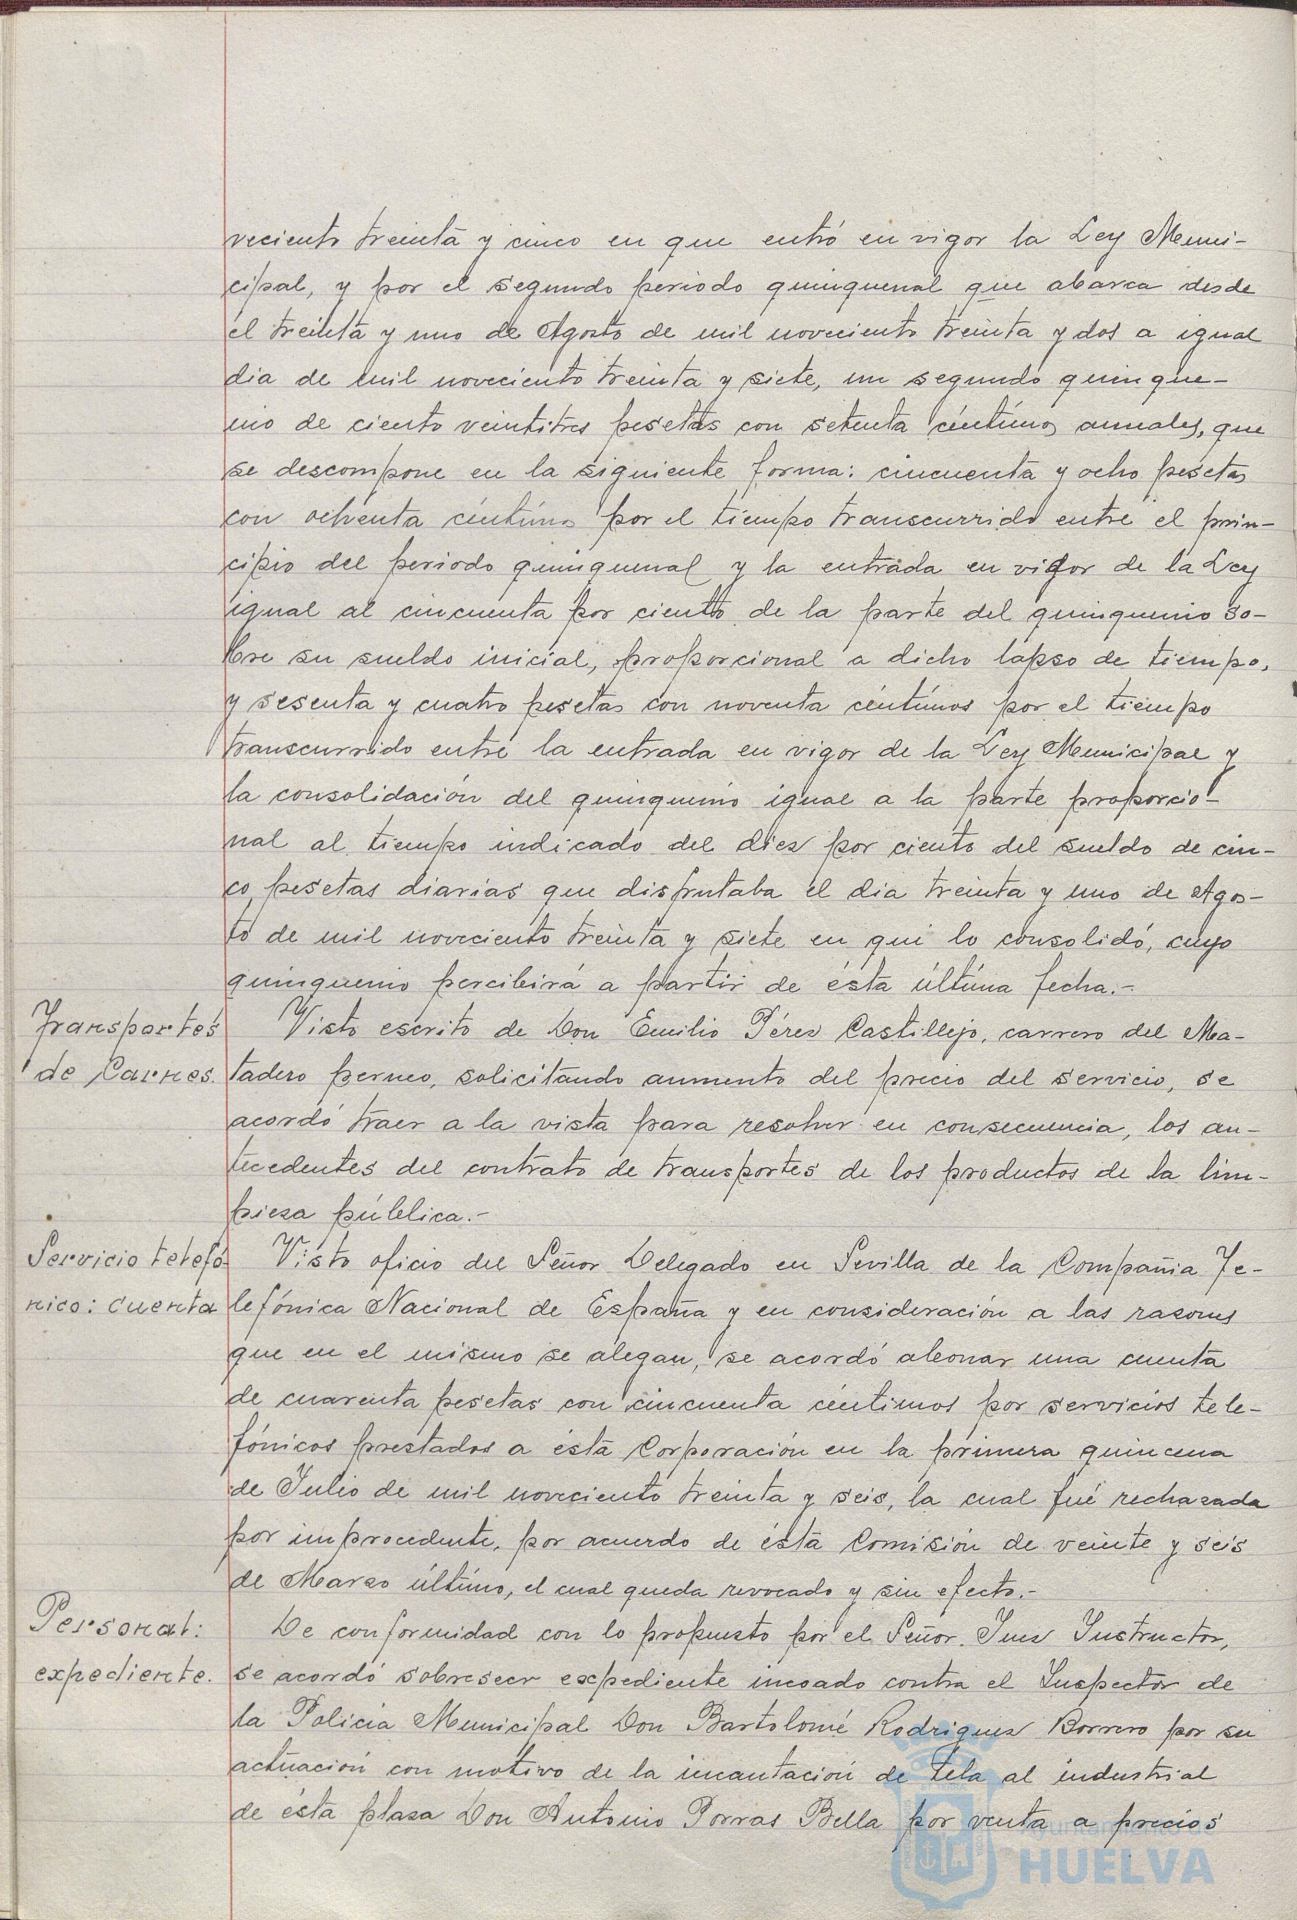 veciento treinta y cinco en que entró en vigor la Ley Muni-
cipal, y por el segundo periodo quinquenal que abarca desde
el treinta y uno de Agosto de mil noveciento treinta y dos a igual
dia de mil noveciento treinta y siete, un segundo quinque-
nio de ciento veintitres pesetas con setenta céntimos anuales, que
se descompone en la siguiente forma: cincuenta y ocho pesetas
con ochenta céntimos por el tiempo transcurrido entre el prin-
cipio del periodo quinquenal y la entrada en vigor de la Ley
igual al cincuenta por ciento de la parte del quinquenio so-
bre su sueldo inicial, proporcional a dicho lapso de tiempo,
y sesenta y cuatro pesetas con noventa céntimos por el tiempo
transcurrido entre la entrada en vigor de la Ley Municipal y
la consolidación del quinquenio igual a la parte proporcio-
nal al tiempo indicado del diez por ciento del sueldo de cin-
co pesetas diarias que disfrutaba el dia treinta y uno de Agos-
to de mil noveciento treinta y siete en que lo consolidó, cuyo
quinquenio percibirá a partir de ésta última fecha.-
Transportes
de Carnes.
Visto escrito de Don Emilio Pérez Castillejo, carrero del Ma-
tadero perneo, solicitando aumento del precio del servicio, se
acordó traer a la vista para resolver en consecuencia, los an-
tecedentes del contrato de transportes de los productos de la lim-
pieza pública.-
Servicio telefó-
nico: cuenta
Visto oficio del Señor Delegado en Sevilla de la Compañia Te-
lefónica Nacional de España y en consideración a las razones
que en el mismo se alegan, se acordó abonar una cuenta
de cuarenta pesetas con cincuenta céntimos por servicios tele-
fónicos prestados a ésta Corporación en la primera quincena
de Julio de mil noveciento treinta y seis, la cual fué rechazada
por improcedente, por acuerdo de ésta Comisión de veinte y seis
de Marzo último, el cual queda revocado y sin efecto.-
Personal:
expediente.
De conformidad con lo propuesto por el Señor Juez Instructor,
se acordó sobreseer expediente incoado contra el Inspector de
la Policia Municipal Don Bartolomé Rodriguez Borrero por su
actuación con motivo de la incautación de tela al industrial
de ésta plaza Don Antonio Porras Bella por venta a precios
Ayuntamiento de
HUELVA